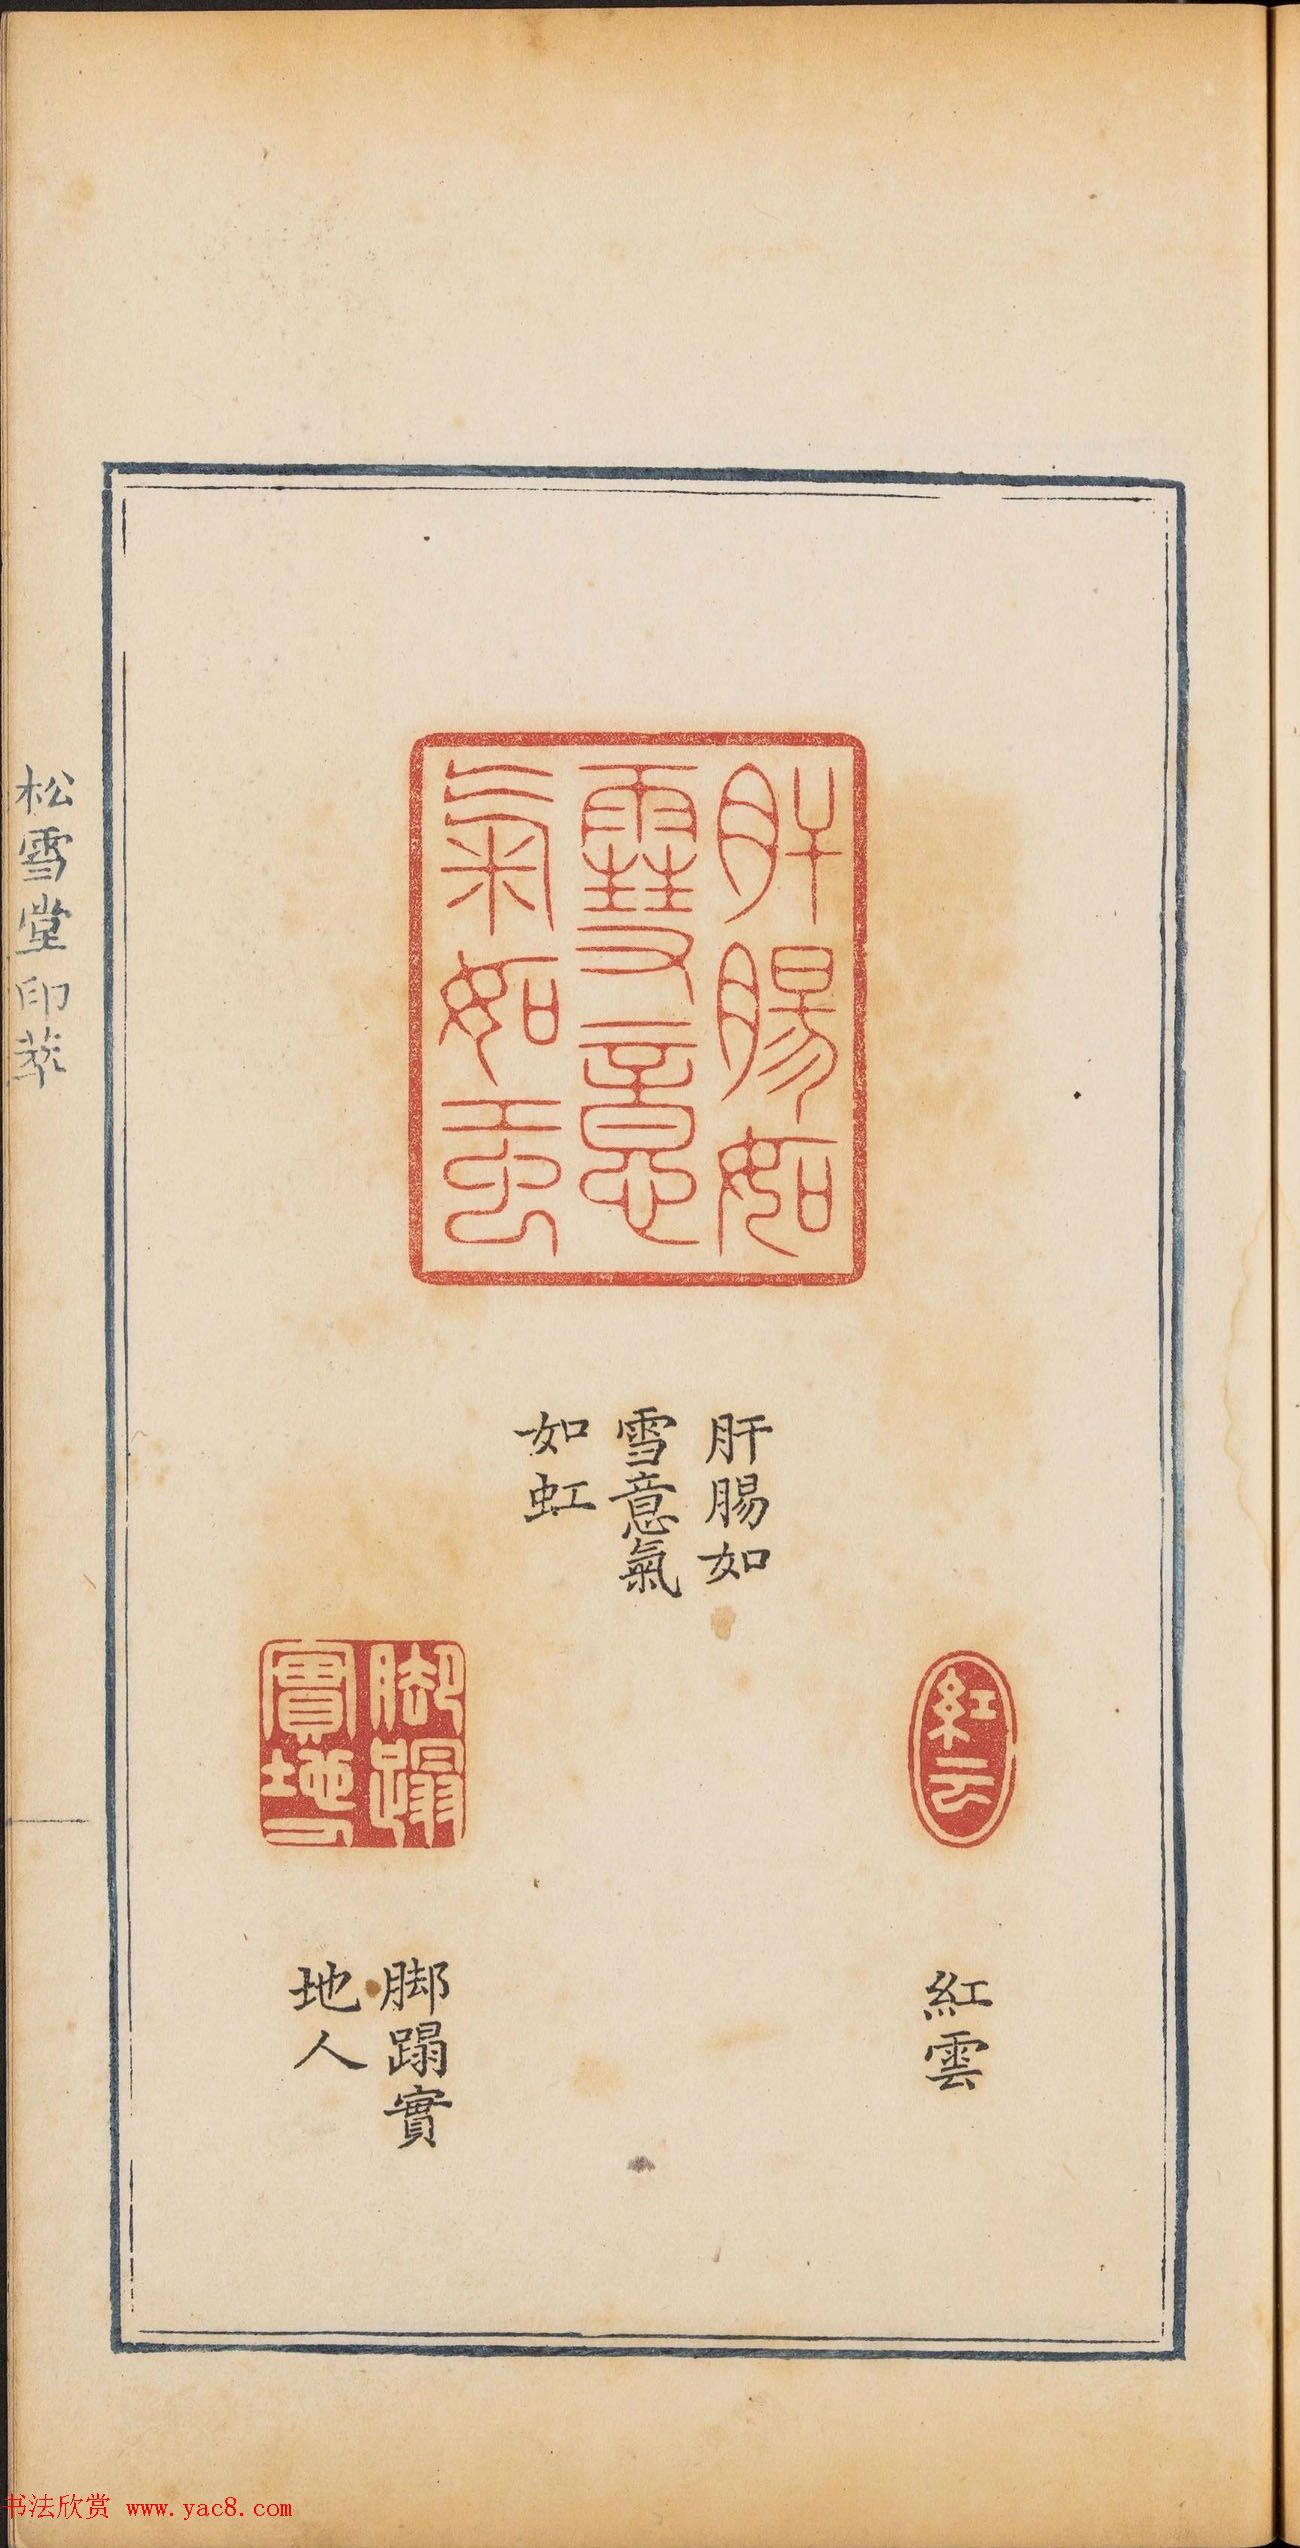 肝腸如
雪意
氣如虹
肝腸如
雪意氣
如虹
紅云
紅雲
脚蹋
實地人
脚蹋實
地人
松雪堂印萃
书法欣赏 www.yac8.com